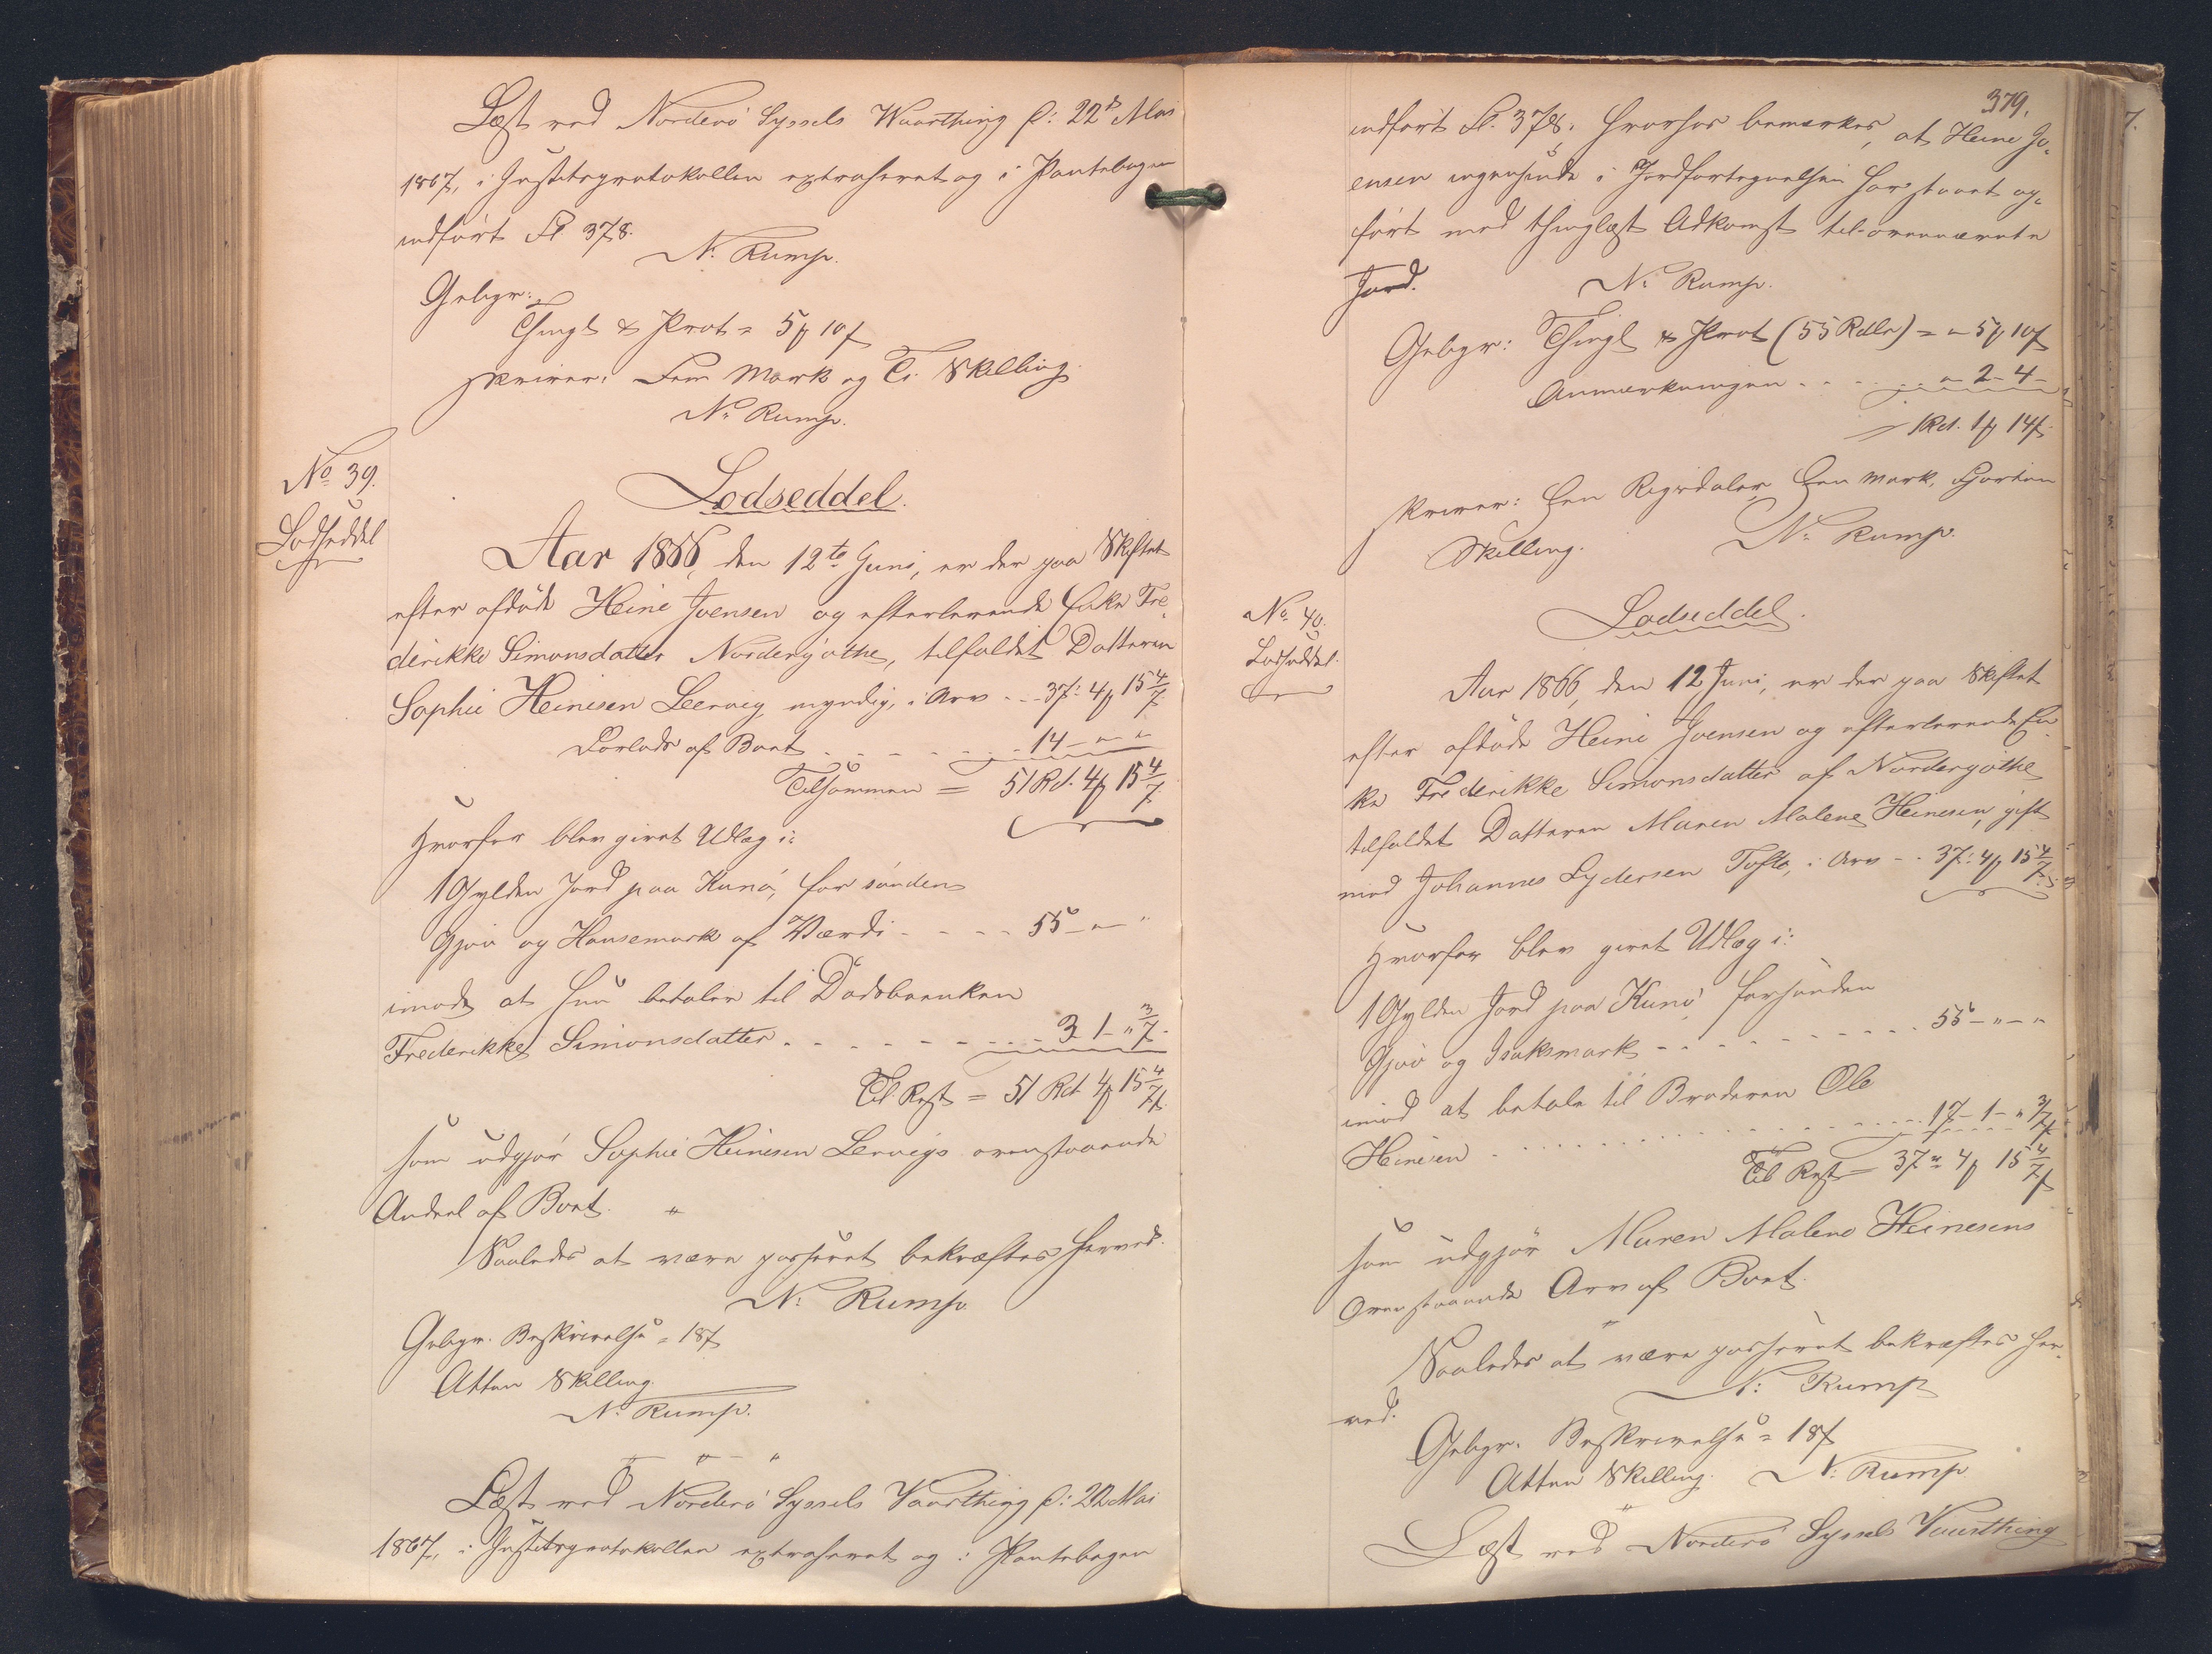 Læst ved Norderö Syssels Vaarthing d: 22de Mai
1867, i Justitsprotokollen extraheret og i Pantebogen
indført Fl. 378.
N. Rump.
Gebyr:
Thingl & Prot = 5 mk 10 s
skriver: Fem Mark og Ti Skilling.
N. Rump.
No 39.
Lodseddel
Lodseddel.
Aar 1866, den 12te Juni, er der paa Skiftet
efter afdøde Heine Joensen og efterlevende Enke Fre-
derikke Simonsdatter Nordregöthe, tilfaldet Datteren
Sophie Heinesen Lervig myndig, i Arv - - 37: 4 mk 15 4/7
Forlods af Boet - - - - - 14 - " - "
Tilsammen = 51 Rd. 4 mk 15 4/7
Hvorfor blev givet Udlæg i:
1 Gylden Jord paa Kunö, for sönden
Gjov og Hansemark af Værdi - - - - 55 - " - "
imod at hun betaler til Dødsboenken
Frederikke Simonsdatter - - - - - - 3 1 - " 3/7 -
Til Rest = 51 Rd 4 mk 15 4/7 s
som udgjør Sophie Heinesen Lervigs ovenstaaende
Andeel af Boet. "
Saaledes at være passeret bekræftes herved.
N: Rump
Gebyr. Beskrivelse = 18 s
Atten Skilling.
N: Rump.
" - " - "
Læst ved Norderö Syssels Vaarthing d: 22 Mai
1867, i Justitsprotokollen extraheret og i Pantebogen
379.
indført Fl. 378. hvorhos bemærkes, at Heine Jo-
ensen ingensinde i Jordfortegnelsen har staaet op-
ført med thinglæst Adkomst til ovennævnte
Jord.
N: Rump.
Gebyr: Thingl & Prot (55 Rdlr) = " 5 mk 10 s
Anmærkningen - - - - " - 2 - 4 -
1 Rd. 1 mk 14 s
skriver: Een Rigsdaler, Een Mark, Fjorten
Skilling.
N. Rump.
No 40.
Lodseddel.
Lodseddel.
Aar 1866, den 12 Juni, er der paa Skiftet
efter afdøde Heine Joensen og efterlevende En-
ke Frederikke Simonsdatter af Nordregöthe
tilfaldet Datteren Maren Malene Heinesen, gift
med Johannes Lydersen Tofte, i Arv - - 37: 4 mk 15 4/7 s
Hvorfor blev givet Udlæg i:
1 Gylden Jord paa Kunö forsönden
Gjov og Isaksmark - - - - - - - - 55 - " - "
imod at betale til Broderen Ole
Heinesen - - - - - - - - 17 - 1 - " 3/7 s
Til Rest = 37 rd 4 mk 15 4/7 s
som udgjør Maren Malene Heinesens
ovenstaaende Arv af Boet.
"
Saaledes at være passeret bekræftes her-
ved.
N: Rump
Gebyr. Beskrivelse = 18 s
Atten Skilling. N: Rump
"
Læst ved Norderö Syssels Vaarthing
7.